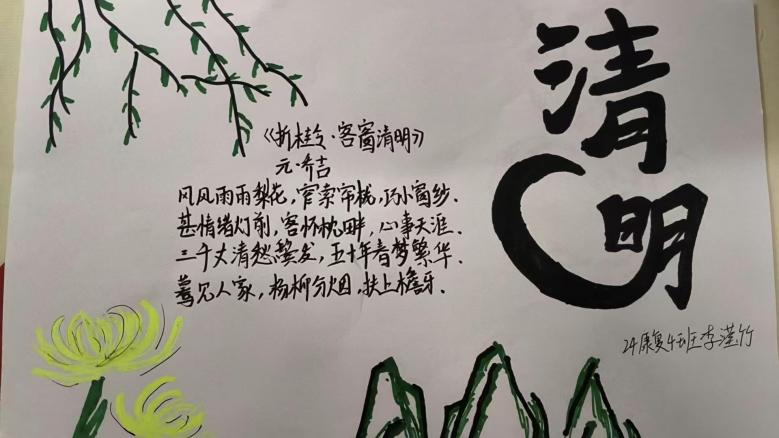 清明
《折桂令·客窗清明》
元·乔吉
风风雨雨梨花，窄索帘栊，巧小窗纱．
甚情绪灯前，客怀枕畔，心事天涯．
三千丈清愁鬓发，五十年春梦繁华．
蓦见人家，杨柳分烟，扶上檐牙．
24康复4班李滢竹